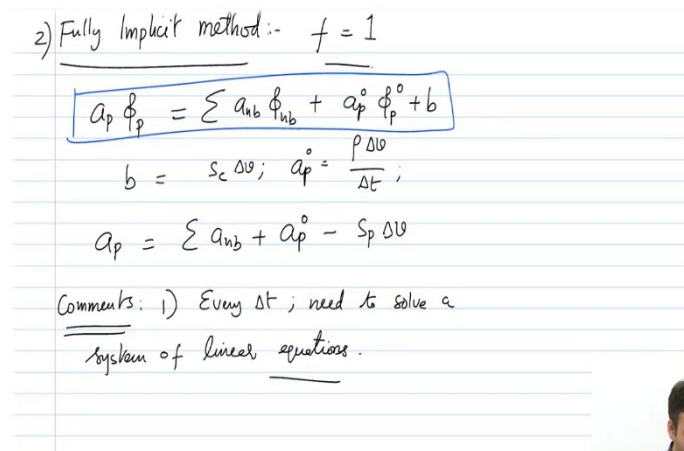 2) Fully Implicit method :- f = 1
a_p ϕ_p = Σ a_nb ϕ_nb + a_p^o ϕ_p^o + b
b = S_c Δv ; a_p^o = ρ Δv / Δt ;
a_p = Σ a_nb + a_p^o - S_p Δv
Comments: 1) Every Δt ; need to solve a
system of linear equations.